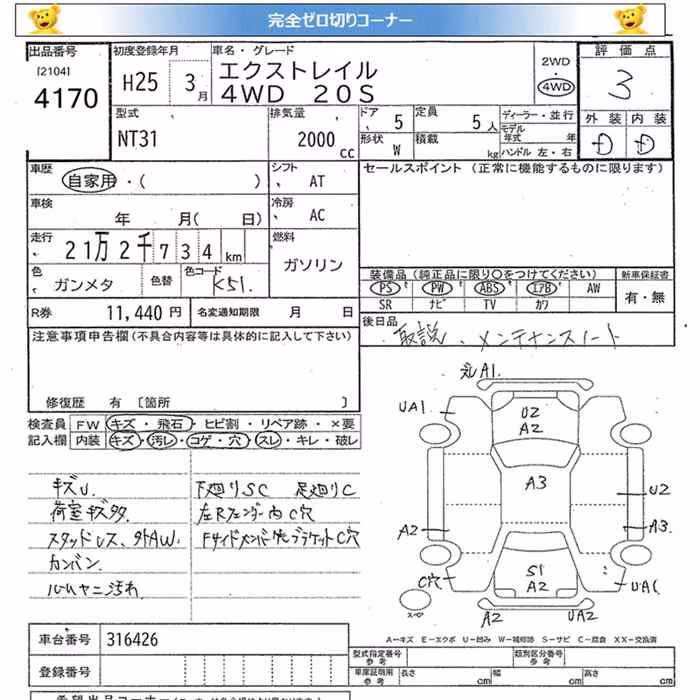 完全ゼロ切りコーナー
出品番号
[2104]
4170
初度登録年月
H25 3月
車名・グレード
エクストレイル
4WD 20S
2WD
4WD
評価点
3
外装 内装
D D
型式
NT31
排気量
2000 cc
ドア 5
定員 5人
形状 W
積載 kg
ディーラー・並行
モデル年式 年
ハンドル 左・右
車歴
自家用・( )
シフト
AT
セールスポイント (正常に機能するものに限ります)
車検
年 月( 日)
冷房
AC
走行
21万2千734km
燃料
ガソリン
色
ガンメタ
色替
色コード
K51.
装備品 (純正品に限り○をつけてください)
PS PW ABS エアB AW
SR ナビ TV カワ
新車保証書
有・無
R券 11,440円
名変通知期限 月 日
後日品
取説、メンテナンスノート
注意事項申告欄(不具合内容等は具体的に記入して下さい)
修復歴 有 [箇所 ]
検査員記入欄
FW キズ・飛石・ヒビ割・リペア跡・×要
内装 キズ・汚レ・コゲ・穴・スレ・キレ・破レ
キズU.
荷室キズ多
スタッドレス、外AW.
カンバン.
ルームヤニ汚れ
下廻りSC 足廻りC
左Rフェンダー内C穴
A1.
UA1
U2
A2
A3
U2
A2
A3
C穴
S1
A2
UA1
A2
UA2
スペア
A-キズ E-エクボ U-凹み W-補修跡 S-サビ C-腐食 XX-交換済
車台番号 316426
登録番号
型式指定番号 参考
類別区分番号 参考
車庫証明用 参考
長さ cm 幅 cm 高さ cm